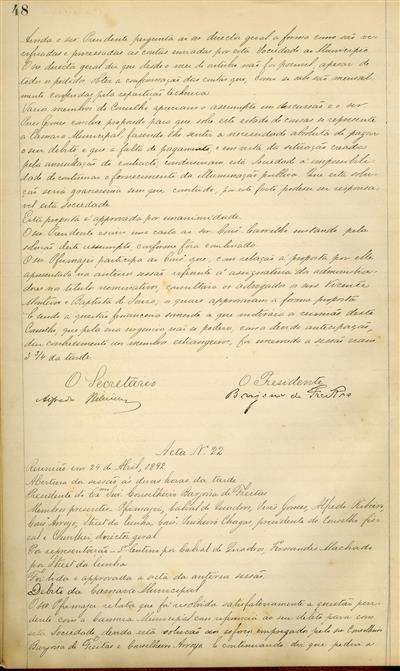 48
Ainda o snr. Presidente pergunta ao snr director geral a forma como são ve-
rificadas e processadas as contas enviadas por esta Sociedade ao Municipio
O snr director geral diz que desde o mez de outubro não foi possivel, apesar de
todo o pedido, obter a confirmação das contas que, como se sabe são mensal-
mente conferidas pela repartição technica
Varios membros do Conselho apreciam o assumpto em discussão e o snr
Pires Gomes conclue propondo para que sobre este estado de cousas se represente
á Camara Municipal, fazendo lhe sentir a necessidade absoluta de pagar
o seu debito e que a falta de pagamento, e em vista da situação creada
pela annullação do contracto, conduziriam esta Sociedade á impossibili-
dade de continuar o fornecimento da illuminação publica. Que esta solu-
ção seria gravissima sem que, contudo, por este facto podesse ser responsa-
vel esta Sociedade
Esta proposta é approvada por unanimidade
O snr Presidente escreve uma carta ao snr Cons. Carvalho instando pela
solução deste assumpto, conforme fora combinado
O snr participa ao Cons. que, com relação á proposta por elle
apresentada na anterior sessão referente á assignatura dos administra-
dores no titulo nominativo, consultára os advogados os snrs Vicente
Monteiro e Baptista de Sousa, os quaes approvaram a forma proposta
Sendo a questão financeira somente a que motivára a reunião deste
Conselho, que pela sua urgencia não se podera, com a devida anticipação,
dar conhecimento aos membros estrangeiros, foi encerrada a sessão eram
5 1/4 da tarde.
O Secretario
Alfredo Ribeiro
O Presidente
Barjona de Freitas
Acta Nº 22
Reunião em 29 de Abril, 1892
Abertura da sessão ás duas horas da tarde
Presidente o Exmo Snr. Conselheiro Barjona de Freitas
Membros presentes: Cabral de Quadros, Pires Gomes, Alfredo Ribeiro,
Cons. Arroyo, Street da Cunha, Cons. Pinheiro Chagas, presidente do Conselho fis-
cal e director geral
Por representação - por Cabral de Quadros, Fernandes Machado
por Street da Cunha
Foi lida e approvada a acta da anterior sessão.
Debito da Camara Municipal
O snr relata que foi resolvida satisfatoriamente a questão pen-
dente com a Camara Municipal com referencia ao seu debito para com
esta Sociedade devido esta solução aos esforços empregados pelo snr Conselheiro
Barjona de Freitas e Conselheiro Arroyo e continuando diz que pediu a